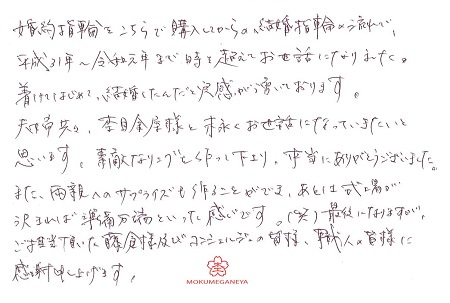 婚約指輪をこちらで購入してからの、結婚指輪の流れで、
平成31年~令和元年まで時を超えてお世話になりました。
着けてはじめて、結婚したんだと実感がう湧いております。
夫婦共々、杢目金屋様と末永くお世話になっていきたいと
思います。素敵なリングを作って下さり、本当にありがとうございました。
また、両親へのサプライズも作ることができ、あとは式場が
決まれば準備万端といった感じです。(笑)最後になりますが、
ご担当頂いた藤倉様及びコンシェルジュの皆様、職人の皆様に
感謝申し上げます。
MOKUMEGANEYA